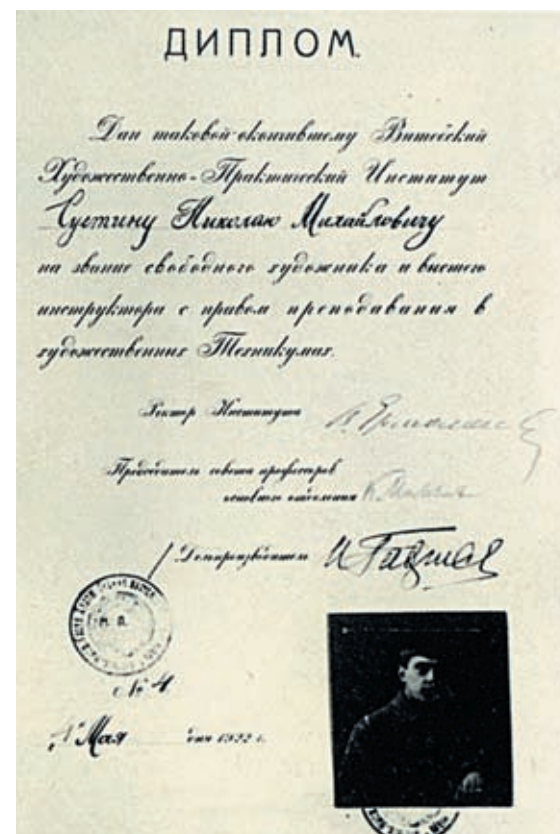 ДИПЛОМ.
Дан таковой окончившему Витебский
Художественно-Практический Институт
Суетину Николаю Михайловичу
на звание свободного художника и высшего
инструктора с правом преподавания в
художественных Техникумах.
Ректор Института
В. Ермолае
Председатель совета профессоров
К Малевич
Делопроизводитель И Гаврис
М. П.
№ 4.
"1" Мая дня 1922 г.